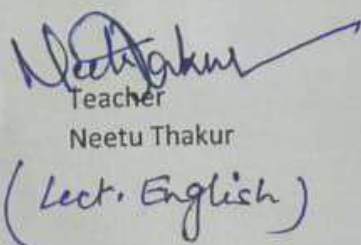 Neetu Thakur
Teacher
Neetu Thakur
(Lect. English)